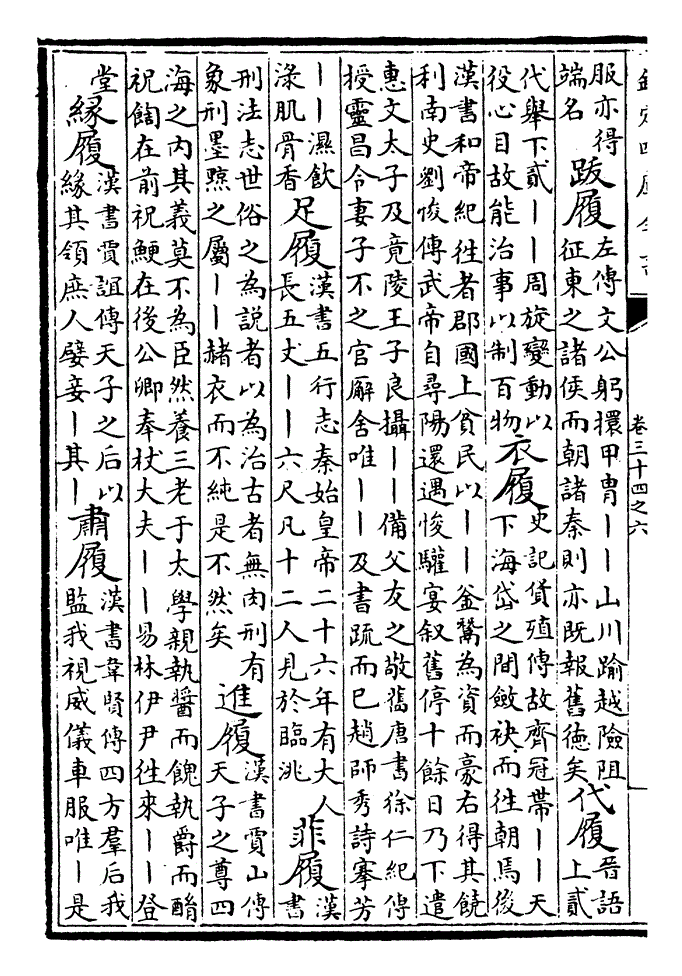 欽定四庫全書
卷三十四之六
服亦得
端名
跋履
左傳文公躬擐甲冑丨丨山川踰越險阻
征東之諸侯而朝諸秦則亦既報舊徳矣
代履
晉語
上貳
代舉下貳丨丨周旋變動以
役心目故能治事以制百物
衣履
史記貨殖傳故齊冠帶丨丨天
下海岱之間斂袂而徃朝焉後
漢書和帝紀徃者郡國上貧民以丨丨釜鬵為資而豪右得其饒
利南史劉悛傳武帝自尋陽還遇悛驩宴叙舊停十餘日乃下遣
惠文太子及竟陵王子良攝丨丨備父友之敬舊唐書徐仁紀傳
授靈昌令妻子不之官廨舍唯丨丨及書疏而已趙師秀詩搴芳
丨丨濕飲
渌肌骨香
足履
漢書五行志秦始皇帝二十六年有大人
長五丈丨丨六尺凡十二人見於臨洮
菲履
漢
書
刑法志世俗之為説者以為治古者無肉刑有
象刑墨黥之屬丨丨赭衣而不純是不然矣
進履
漢書賈山傳
天子之尊四
海之内其義莫不為臣然養三老于太學親執醬而餽執爵而酳
祝餉在前祝鯁在後公卿奉杖大夫丨丨易林伊尹徃來丨丨登
堂
縁履
漢書賈誼傳天子之后以
縁其領庶人孽妾丨其丨
肅履
漢書韋賢傳四方羣后我
監我視威儀車服唯丨是